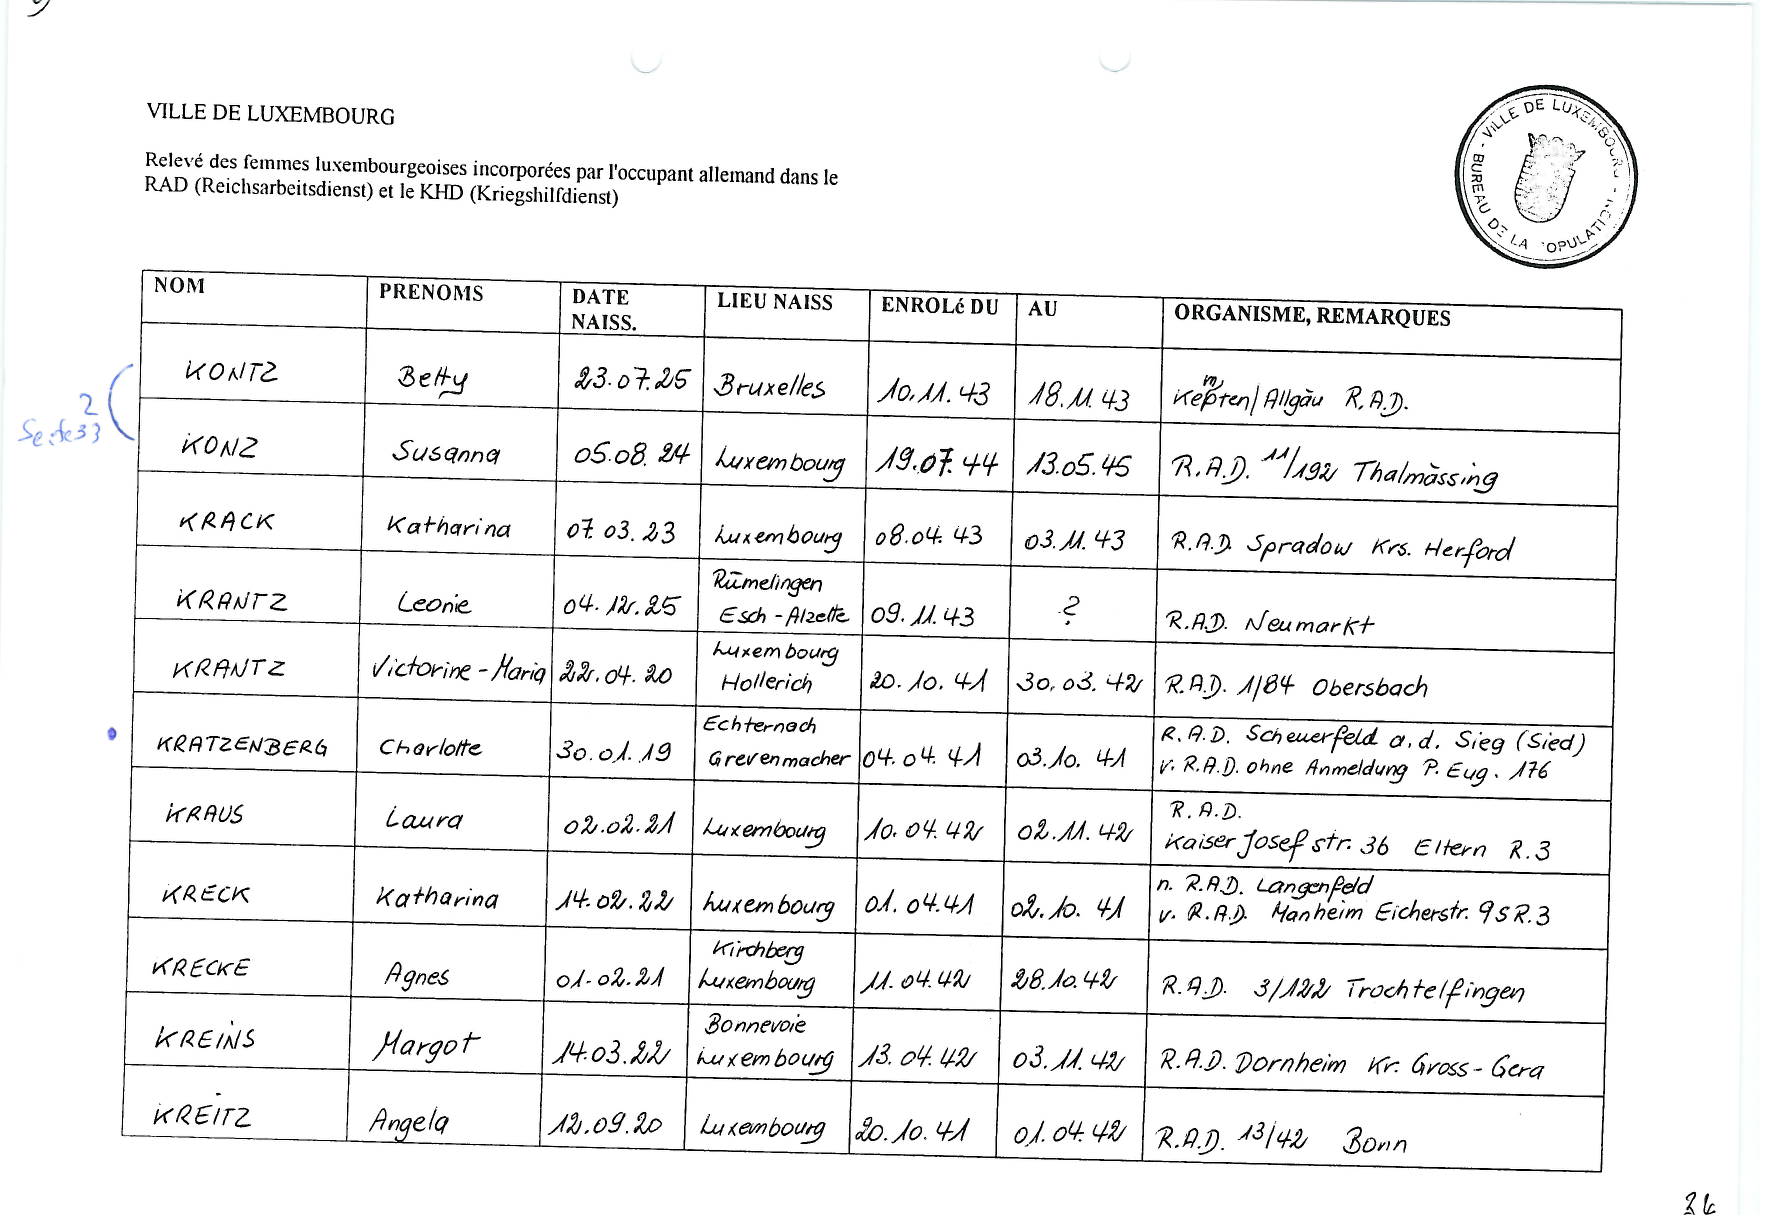 VILLE DE LUXEMBOURG
Relevé des femmes luxembourgeoises incorporées par l'occupant allemand dans le
RAD (Reichsarbeitsdienst) et le KHD (Kriegshilfdienst)
- VILLE DE LUXEMBOURG -
BUREAU DE LA POPULATION
NOM PRENOMS DATE NAISS. LIEU NAISS ENROLé DU AU ORGANISME, REMARQUES
KONTZ Betty 23.07.25 Bruxelles 10.11.43 18.11.43 Kempten/Allgäu R.A.D.
2
Seite 33
KONZ Susanna 05.08.24 Luxembourg 19.07.44 13.05.45 R.A.D. 11/192 Thalmässing
KRACK Katharina 07.03.23 Luxembourg 08.04.43 03.11.43 R.A.D. Spradow Krs. Herford
Rümelingen
KRANTZ Leonie 04.12.25 Esch-Alzette 09.11.43 ? R.A.D. Neumarkt
Luxembourg
KRANTZ Victorine-Maria 22.04.20 Hollerich 20.10.41 30.03.42 R.A.D. 1/84 Obersbach
Echternach R.A.D. Scheuerfeld a.d. Sieg (Sied)
KRATZENBERG Charlotte 30.01.19 Grevenmacher 04.04.41 03.10.41 v. R.A.D. ohne Anmeldung P. Eug. 176
R.A.D.
KRAUS Laura 02.02.21 Luxembourg 10.04.42 02.11.42 Kaiser Josef str. 36 Eltern R.3
n. R.A.D. Langenfeld
KRECK Katharina 14.02.22 Luxembourg 01.04.41 02.10.41 v. R.A.D. Manheim Eicherstr. 95 R.3
Kirchberg
KRECKE Agnes 01.02.21 Luxembourg 11.04.42 28.10.42 R.A.D. 3/122 Trochtelfingen
Bonnevoie
KREINS Margot 14.03.22 Luxembourg 13.04.42 03.11.42 R.A.D. Dornheim Kr. Gross-Gera
KREITZ Angela 12.09.20 Luxembourg 20.10.41 01.04.42 R.A.D. 13/42 Bonn